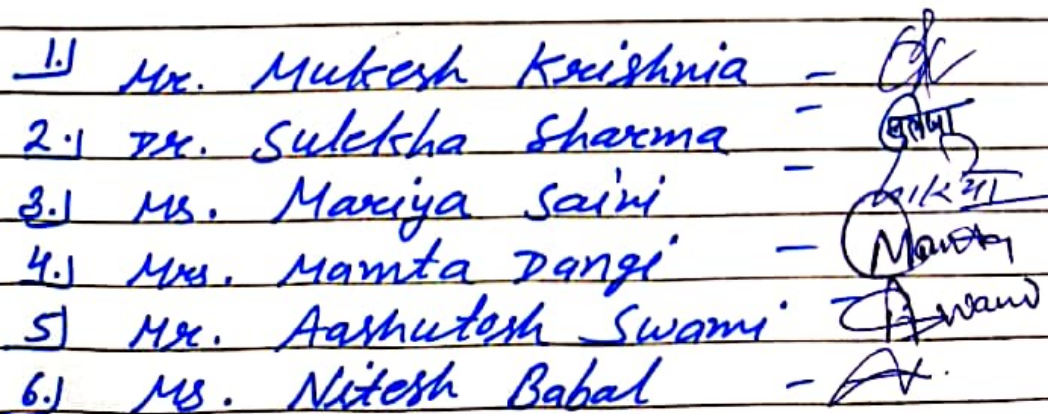 1.] Mr. Mukesh Kreishnia -
2.] Dr. Sulekha Sharma - सुलेखा
3.] Ms. Mariya Saini - मारिया
4.] Mrs. Mamta Dangi - Mamta
5] Mr. Aashutosh Swami - ASwami
6.] Ms. Nitesh Babal -